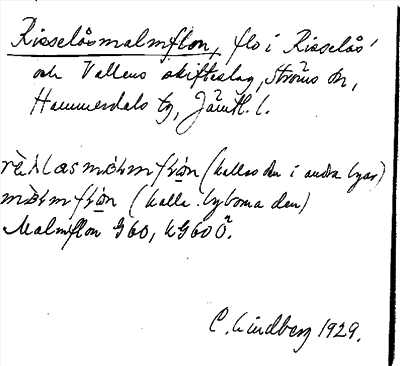 Risselåsmalmflon, flo i Risselås'
och Vallens skifteslag, Ströms sn,
Hammerdals tg, Jämtl. l.
(kallas den i andra byar)
(kalla byborna den)
Malmflon G60, KG60Ö.
C. Lindberg 1929.